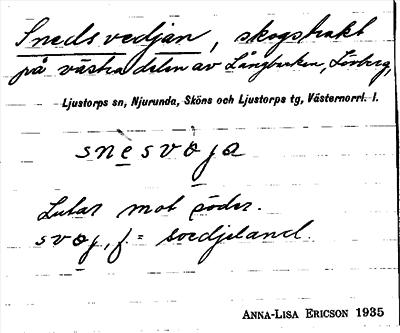 Snedsvedjan, skogstrakt
på västra delen av Långbacken, Lövberg,
Ljustorps sn, Njurunda, Sköns och Ljustorps tg, Västernorrl. l.
snesvøja
Lutar mot söder.
svøj, f. = svedjeland.
ANNA-LISA ERICSON 1935